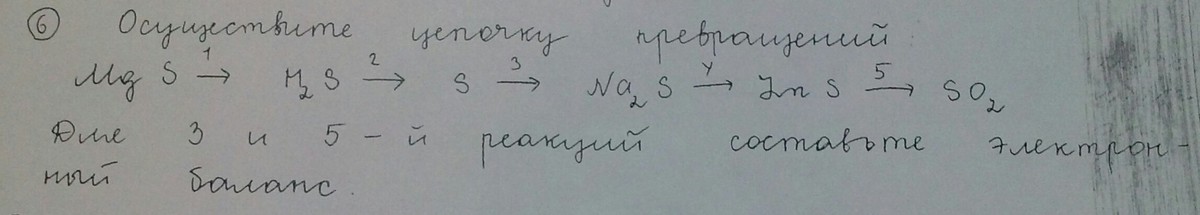 ⑥ Осуществите цепочку превращений:
MgS →¹ H₂S →² S →³ Na₂S →⁴ ZnS →⁵ SO₂
Для 3 и 5-й реакций составьте электрон-
ный баланс.